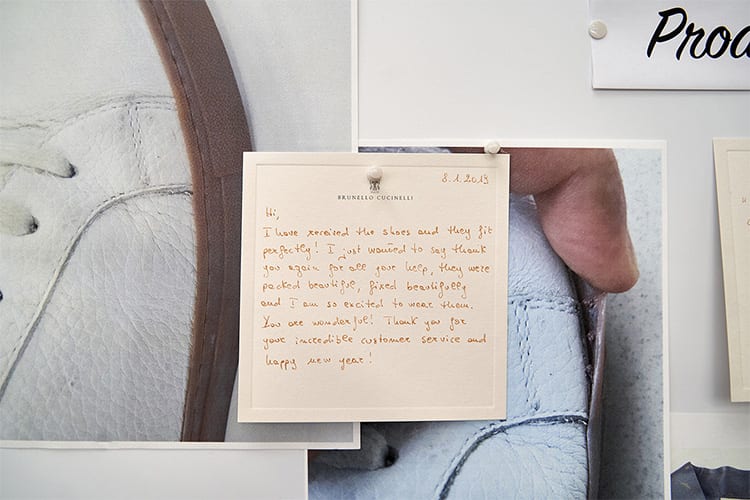 Prod
8.1.2019
BRUNELLO CUCINELLI
Hi,
I have received the shoes and they fit
perfectly! I just wanted to say thank
you again for all your help, they were
packed beautiful, fixed beautifully
and I am so excited to wear them.
You are wonderful! Thank you for
your incredible customer service and
happy new year!